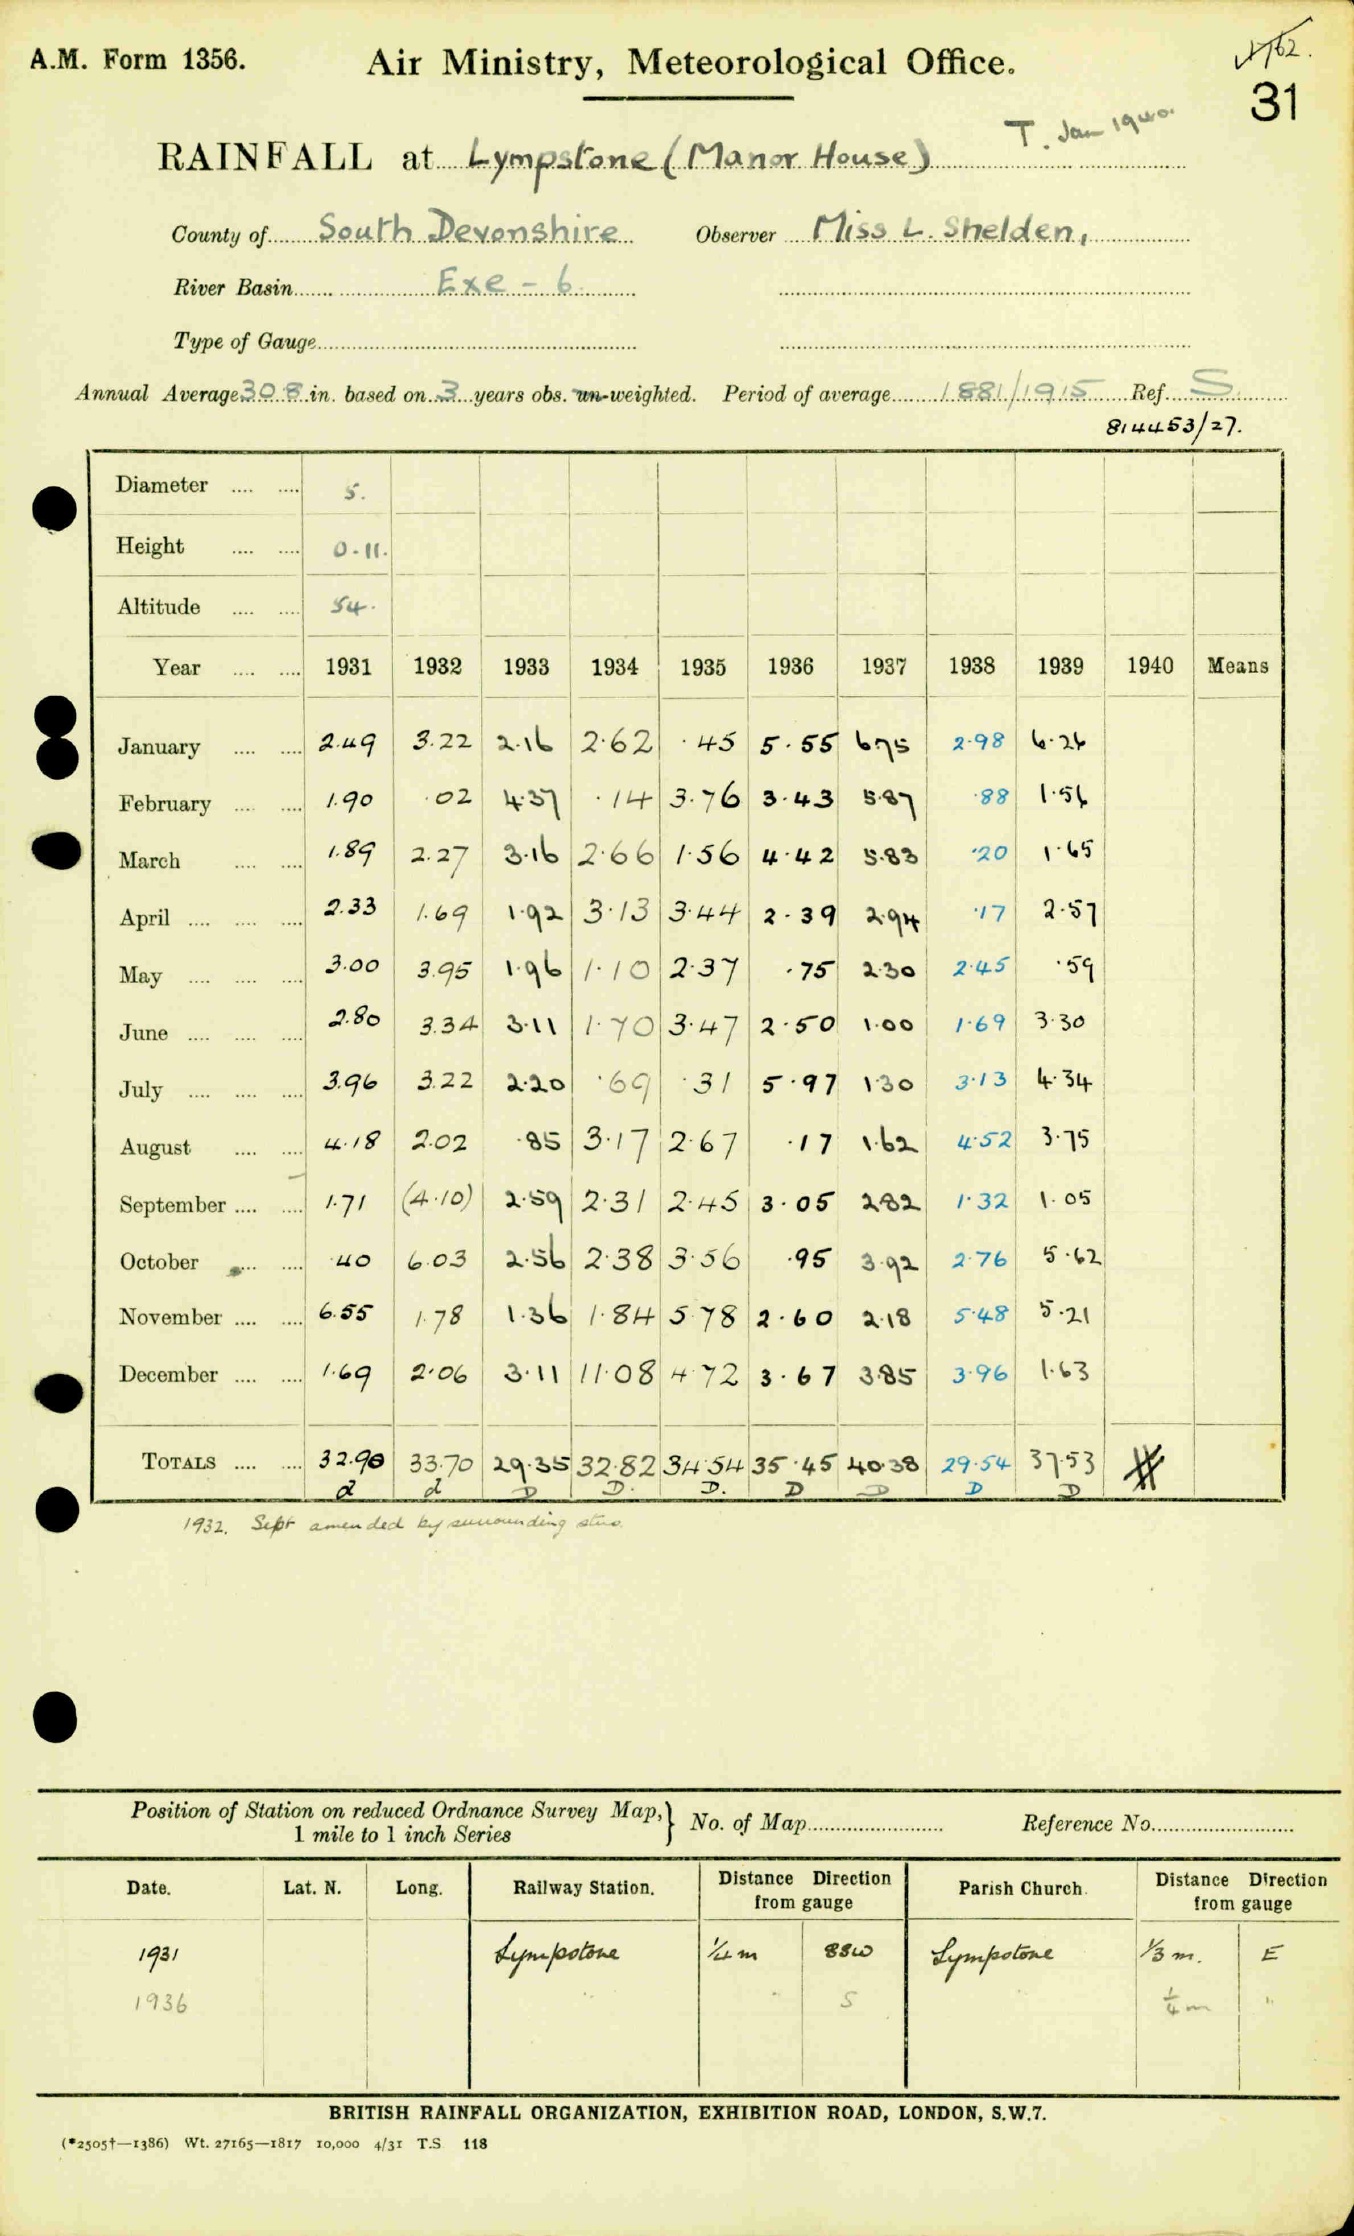 A.M. Form 1356.
Air Ministry, Meteorological Office.
31
T. Jan 1940.
RAINFALL at Lympstone (Manor House)
County of South Devonshire Observer Miss L. Shelden,
River Basin Exe - 6
Type of Gauge
Annual Average 30.8 in. based on 3 years obs. un-weighted. Period of average 1881/1915 Ref. S.
814453/27.
Diameter 5.
Height 0-11.
Altitude 54.
Year 1931 1932 1933 1934 1935 1936 1937 1938 1939 1940 Means
January 2.49 3.22 2.16 2.62 .45 5.55 6.75 2.98 6.26
February 1.90 .02 4.37 .14 3.76 3.43 5.87 .88 1.56
March 1.89 2.27 3.16 2.66 1.56 4.42 5.83 .20 1.65
April 2.33 1.69 1.92 3.13 3.44 2.39 2.94 .17 2.57
May 3.00 3.95 1.96 1.10 2.37 .75 2.30 2.45 .59
June 2.80 3.34 3.11 1.70 3.47 2.50 1.00 1.69 3.30
July 3.96 3.22 2.20 .69 .31 5.97 1.30 3.13 4.34
August 4.18 2.02 .85 3.17 2.67 .17 1.62 4.52 3.75
September 1.71 (4.10) 2.59 2.31 2.45 3.05 2.82 1.32 1.05
October .40 6.03 2.56 2.38 3.56 .95 3.92 2.76 5.62
November 6.55 1.78 1.36 1.84 5.78 2.60 2.18 5.48 5.21
December 1.69 2.06 3.11 11.08 4.72 3.67 3.85 3.96 1.63
TOTALS 32.90 33.70 29.35 32.82 34.54 35.45 40.38 29.54 37.53
d d D D. D. D D D D
1932. Sept amended by surrounding stns.
Position of Station on reduced Ordnance Survey Map, 1 mile to 1 inch Series } No. of Map Reference No.
Date. Lat. N. Long. Railway Station. Distance Direction from gauge Parish Church. Distance Direction from gauge
1931 Lympstone 1/4 m SSW Lympstone 1/3 m. E
1936 " " S 1/4 m "
BRITISH RAINFALL ORGANIZATION, EXHIBITION ROAD, LONDON, S.W.7.
(*2505†—1386) Wt. 27165—1817 10,000 4/31 T.S. 118